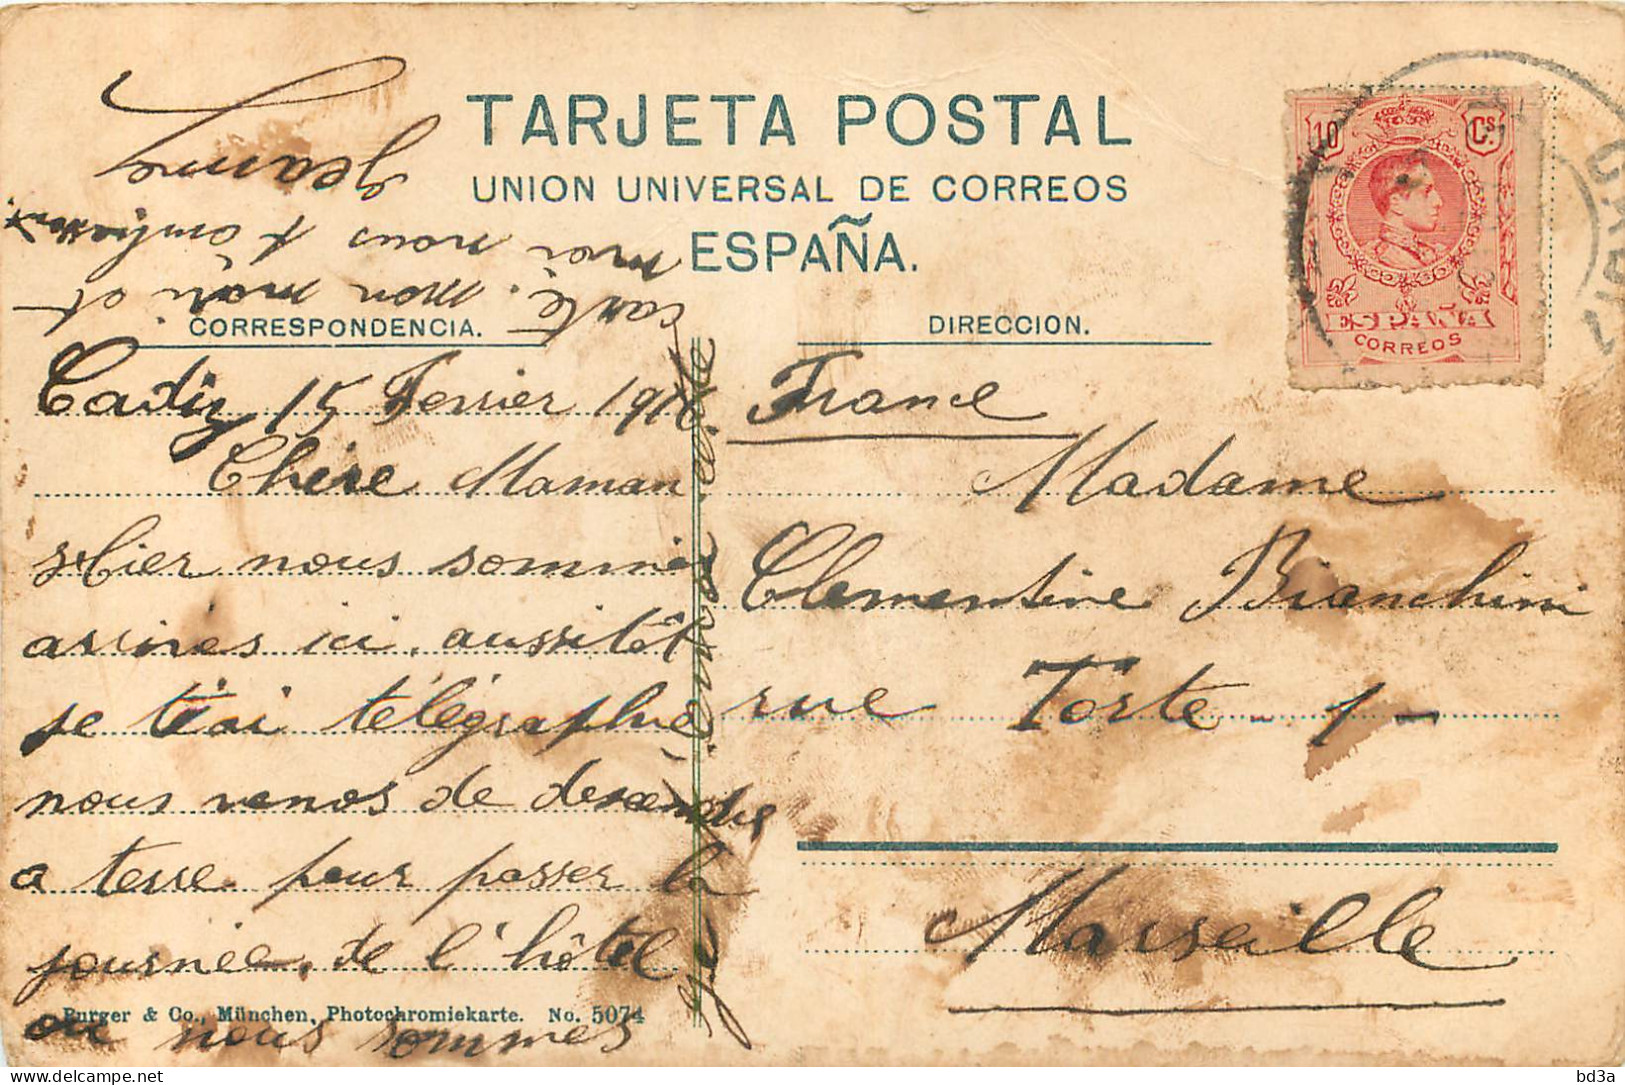 TARJETA POSTAL
UNION UNIVERSAL DE CORREOS
ESPAÑA.
CORRESPONDENCIA.
DIRECCION.
10 Cs.
ESPAÑA
CORREOS
CADIZ
Cadiz 15 Fevrier 1910
Chère Maman
Hier nous sommes
arrivés ici, aussitôt
je t'ai télégraphié,
nous venons de descendre
a terre pour passer la
journée, de l'hôtel
ou nous sommes
je t'envoie cette
carte. mon mari et
moi nous t'embrassons.
Jeanne
France
Madame
Clementine Bianchini
rue Torte - 1 -
Marseille
Purger & Co., München, Photochromiekarte. No. 5074
bd3a